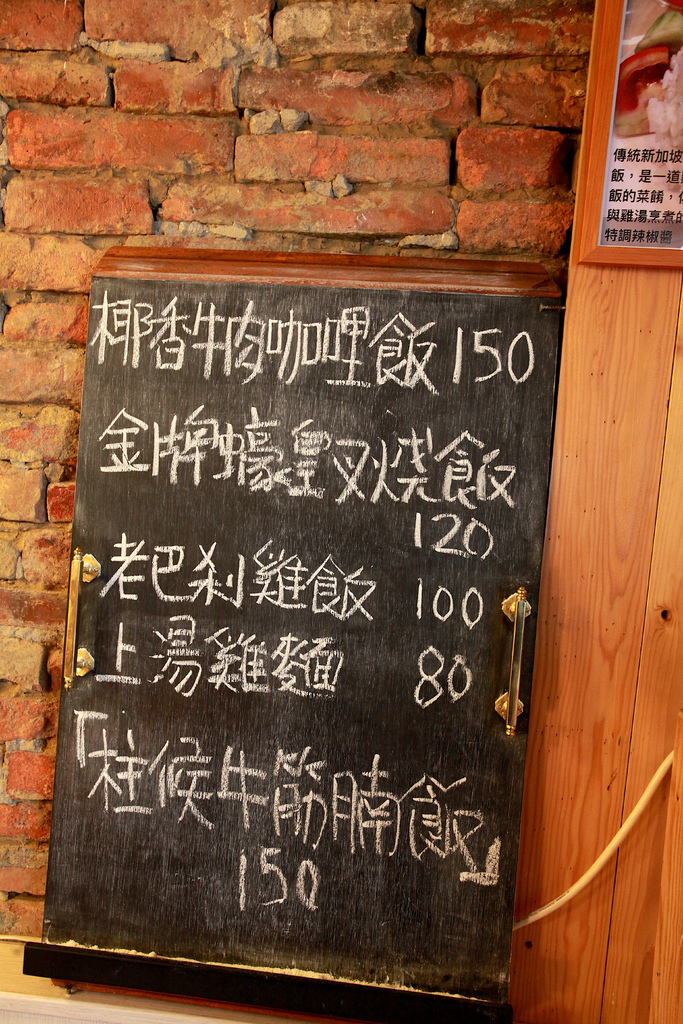 椰香牛肉咖哩飯 150
金牌蠔皇叉燒飯
120
老巴剎雞飯 100
上湯雞麵 80
「柱候牛筋腩飯」
150
傳統新加坡
飯，是一道
飯的菜餚，
與雞湯烹煮的
特調辣椒醬